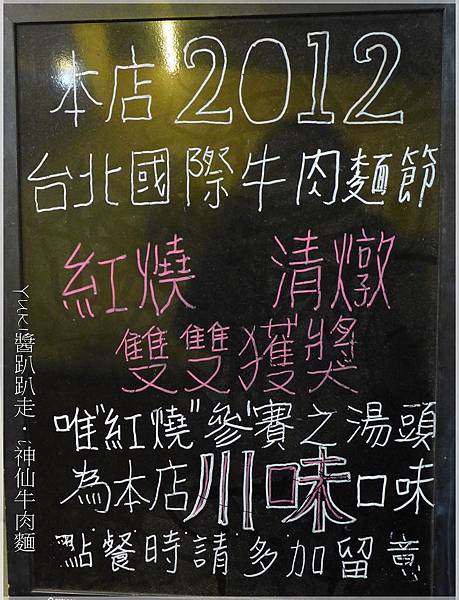 本店2012
台北國際牛肉麵節
紅燒 清燉
雙雙獲獎
唯"紅燒"參賽之湯頭
為本店川味口味
點餐時請多加留意
Yuki醬趴趴走．神仙牛肉麵